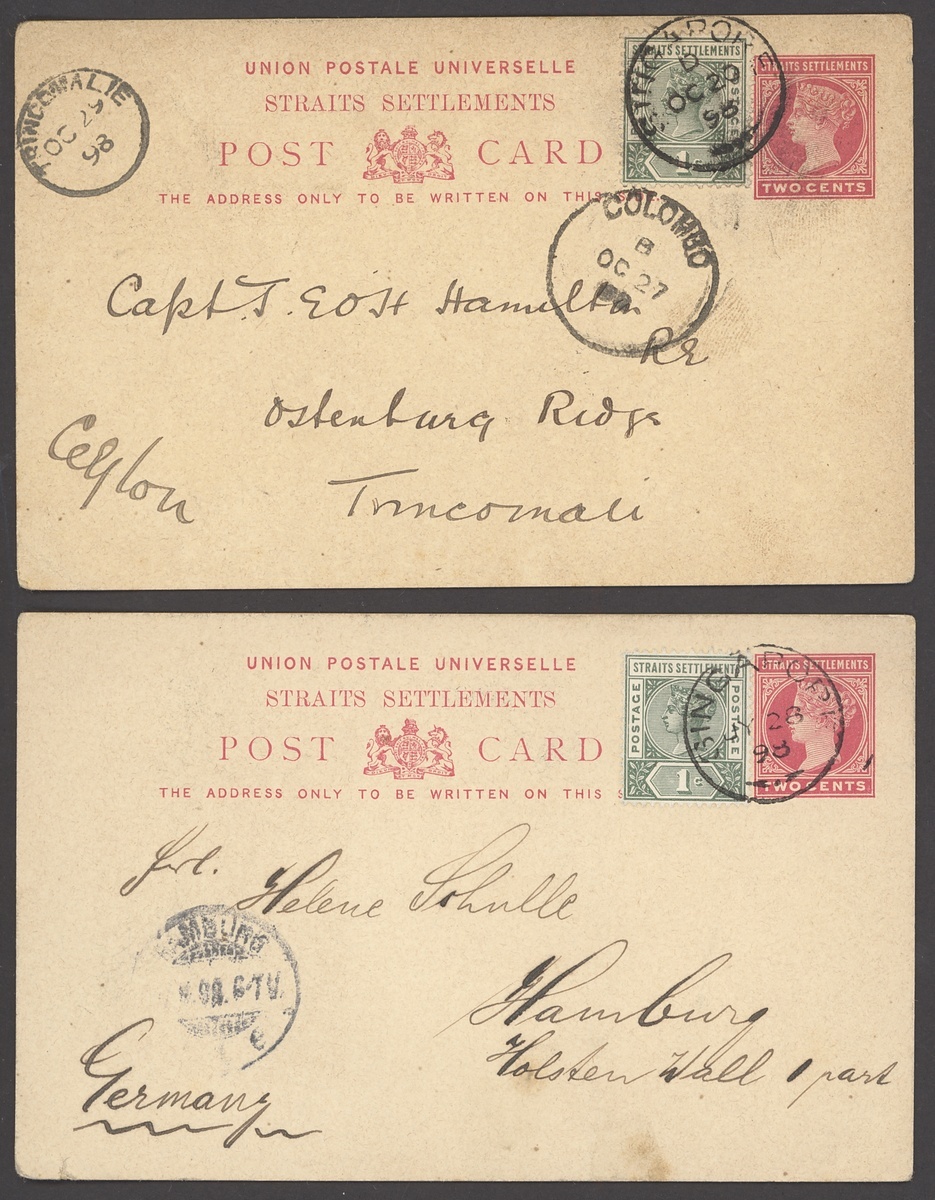 UNION POSTALE UNIVERSELLE
STRAITS SETTLEMENTS
POST CARD
THE ADDRESS ONLY TO BE WRITTEN ON THIS
STRAITS SETTLEMENTS
POSTAGE
1c
STRAITS SETTLEMENTS
TWO CENTS
SINGAPORE
D
OC 20
98
TRINCOMALIE
OC 29
98
COLOMBO
B
OC 27
Capt. J. E O'H Hamilton
RE
Ostenburg Ridge
Trincomali
Ceylon
UNION POSTALE UNIVERSELLE
STRAITS SETTLEMENTS
POST CARD
THE ADDRESS ONLY TO BE WRITTEN ON THIS S
STRAITS SETTLEMENTS
POSTAGE POSTAGE
1c
STRAITS SETTLEMENTS
TWO CENTS
SINGAPORE
28
98
Frl. Helene Schulle
Hamburg
Holsten Wall 1 part
Germany
HAMBURG
98. 6-7 V.
e